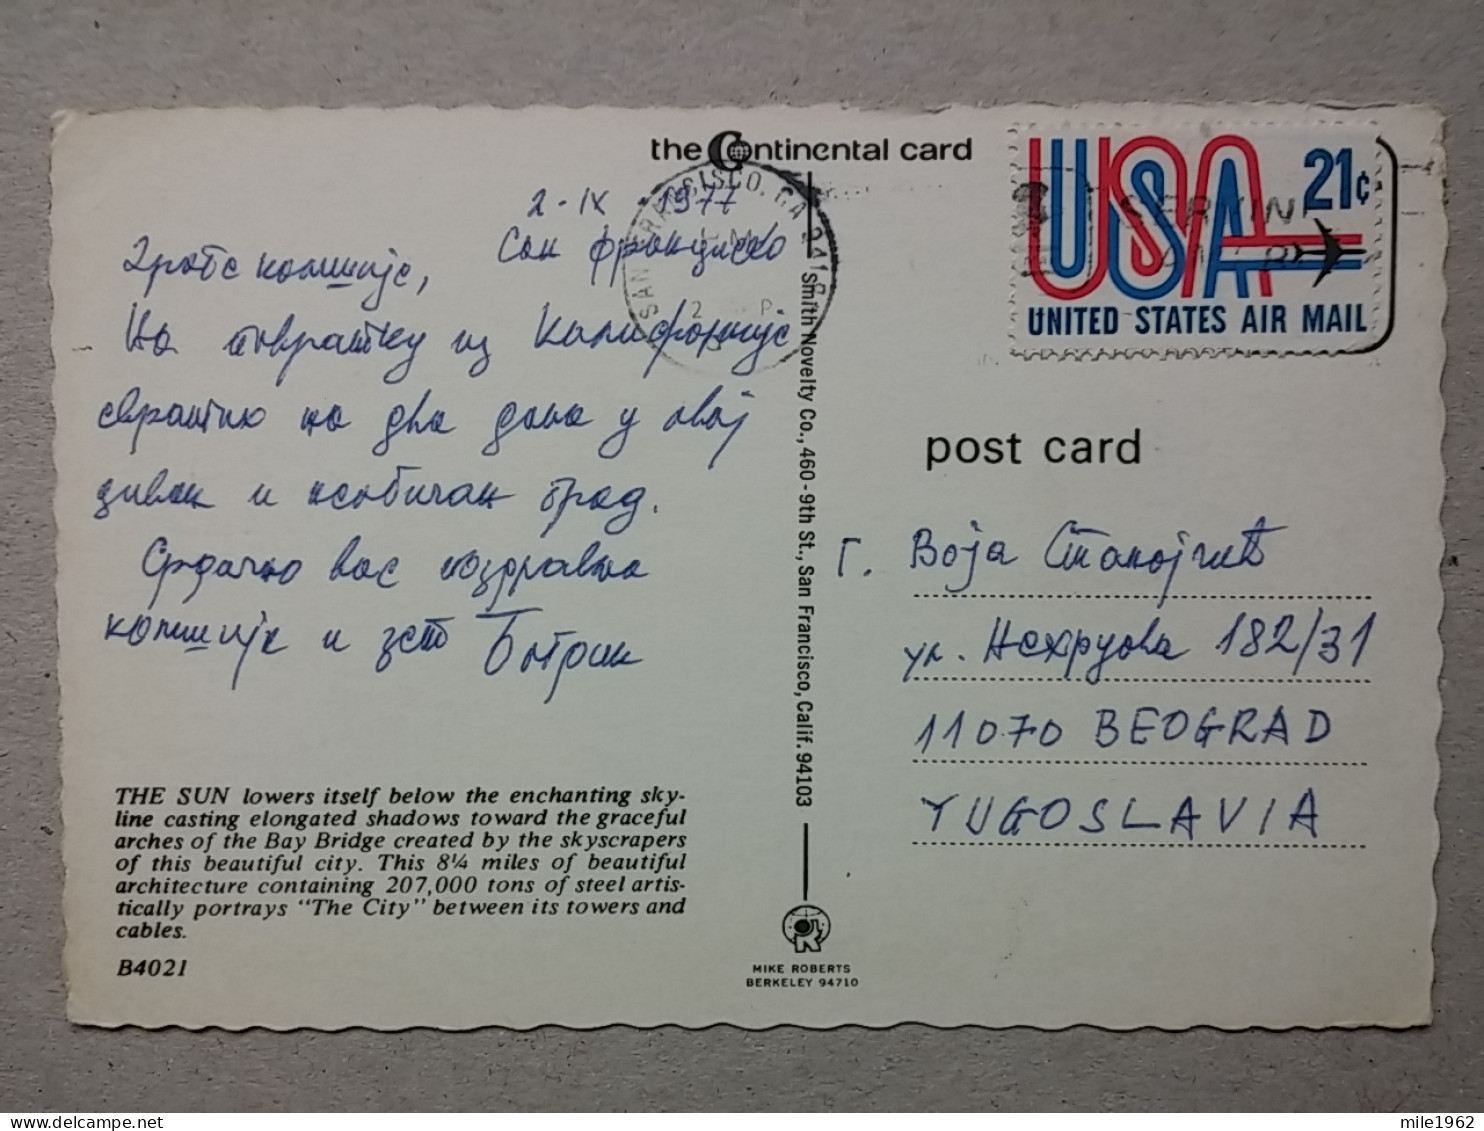 the Continental card
2-IX 1977
Сан Франциско
Драге комшије,
На повратку из Калифорније
свратио на два дана у овај
диван и необичан град.
Срдачно вас поздравља
комшија и зет
THE SUN lowers itself below the enchanting sky-
line casting elongated shadows toward the graceful
arches of the Bay Bridge created by the skyscrapers
of this beautiful city. This 8¼ miles of beautiful
architecture containing 207,000 tons of steel artis-
tically portrays "The City" between its towers and
cables.
B4021
SAN FRANCISCO, CA
Smith Novelty Co., 460-9th St., San Francisco, Calif. 94103
MIKE ROBERTS
BERKELEY 94710
USA 21¢
UNITED STATES AIR MAIL
post card
Г. Воја Станојчић
ул. Нехруова 182/31
11070 BEOGRAD
YUGOSLAVIA
mile1962